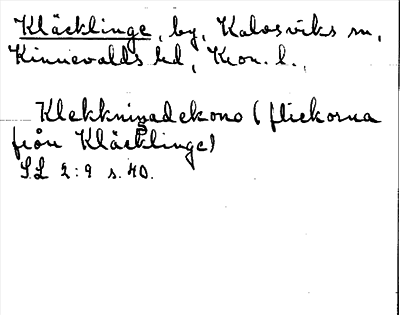 Kläcklinge, by, Kalvsviks sn,
Kinnevalds hd, Kron. l.,
Klekkningadekono (flickorna
från Kläcklinge)
S.L 2:9 s. 40.